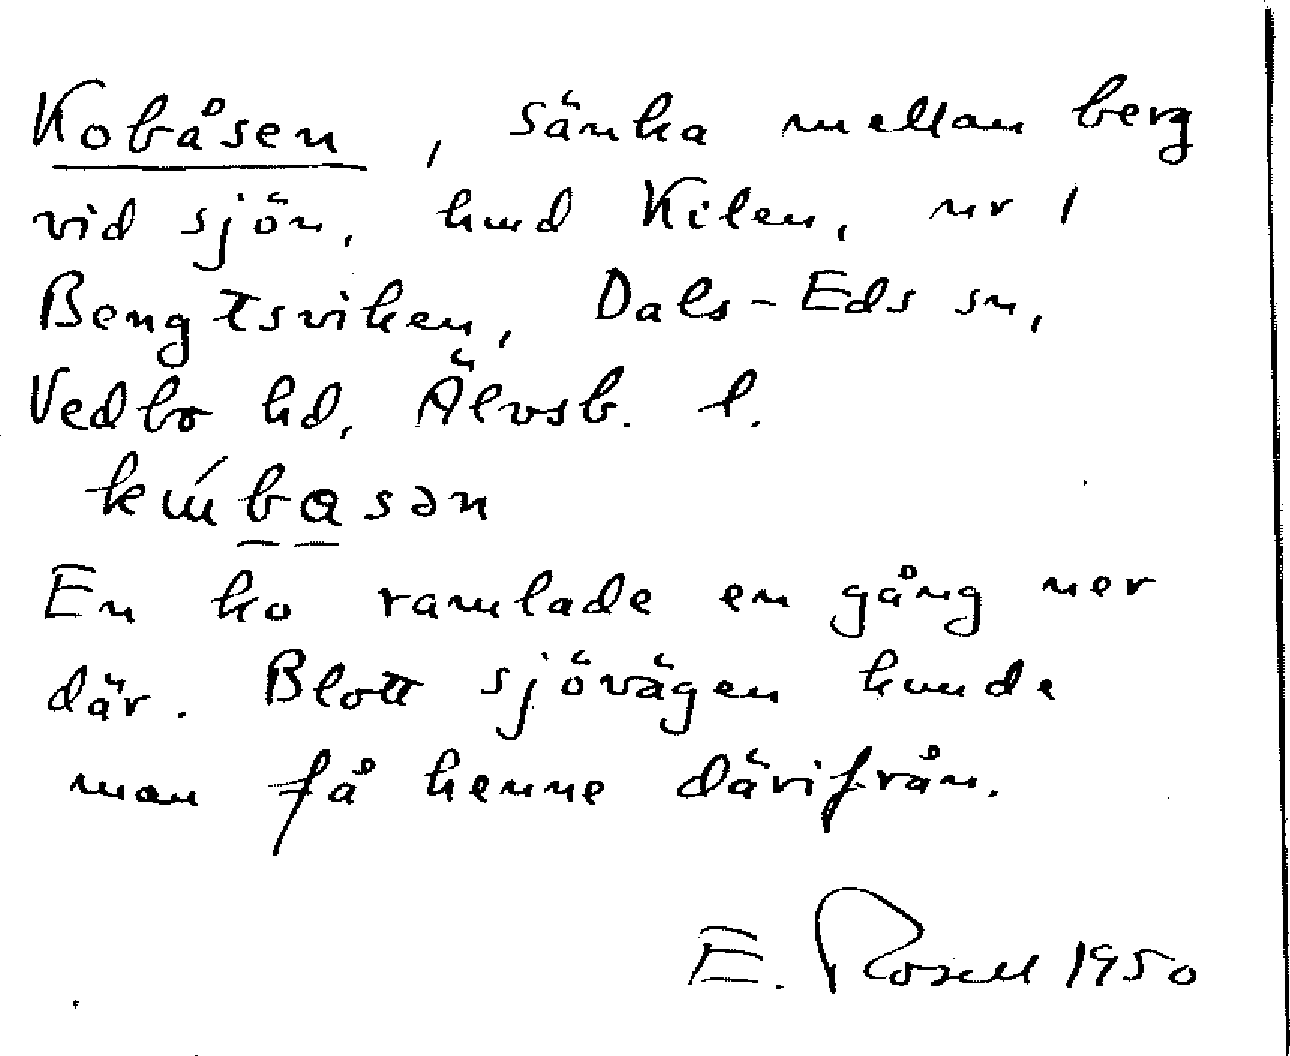 Kobåsen, sänka mellan berg
vid sjön, hmd Kilen, nr 1
Bengtsviken, Dals-Eds sn,
Vedbo hd, Älvsb. l.
En ko ramlade en gång ner
där. Blott sjövägen kunde
man få henne därifrån.
E. Rosell 1950